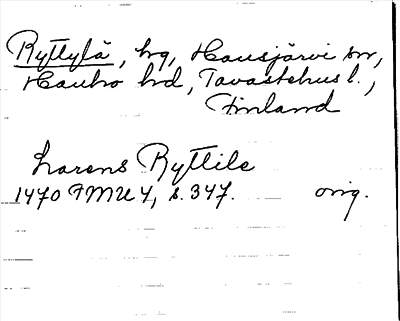 Ryttylä, by, Hausjärvi sn,
Hauho hd, Tavastehus l.,
Finland
Larens Ryttile
1470 FMU 4, s. 347. orig.